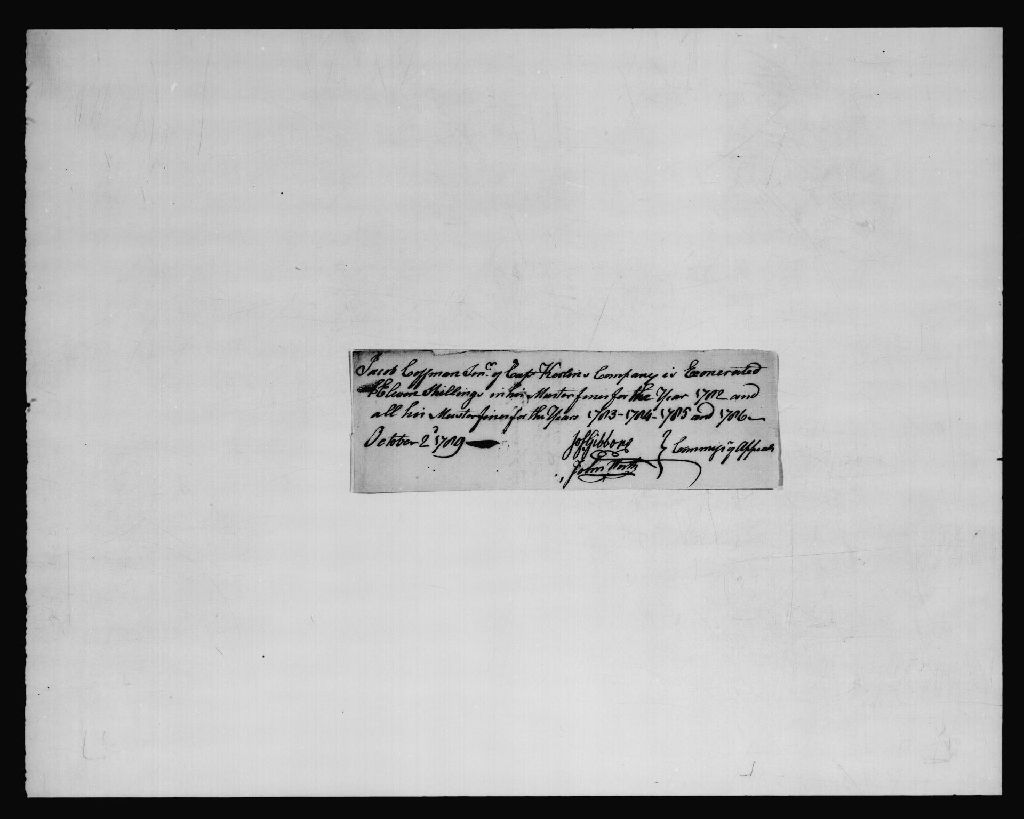 Jacob Coffman Junr. of Capt Kerlins Company is Exonerated
Eleven Shillings in his Muster fines for the Year 1782 and
all his Muster fines for the Years 1783-1784-1785 and 1786-
October 2d 1789
Jos Gibbons
John North
} Commisrs of Appeals